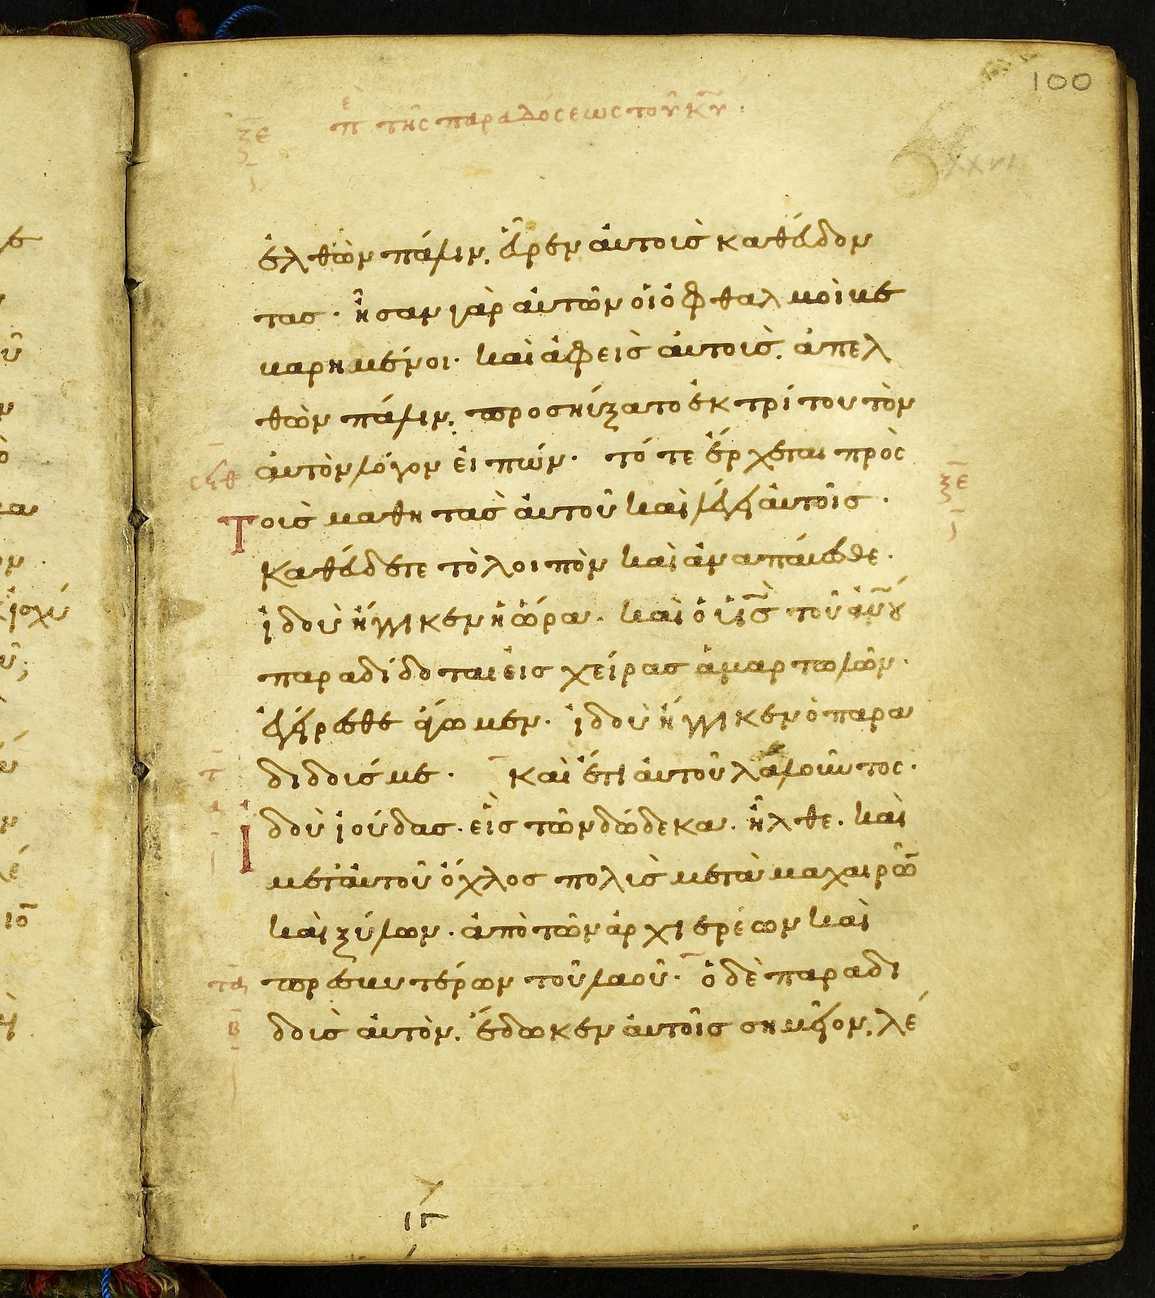 100
ξε ἐπ τῆς παραδόσεως τοῦ κ̅υ̅.
ἐλθὼν πάλιν, εὗρεν αὐτοὺς καθεύδον
τας · ἦσαν γὰρ αὐτῶν οἱ ὀφθαλμοὶ βε
βαρημένοι · καὶ ἀφεὶς αὐτοὺς, ἀπελ
θὼν πάλιν, προσηύξατο ἐκ τρίτου τὸν
αὐτὸν λόγον εἰπών · τότε ἔρχεται πρὸς
τοὺς μαθητὰς αὐτοῦ καὶ λέγει αὐτοῖς ·
ξε
καθεύδετε τὸ λοιπὸν καὶ ἀναπαύεσθε ·
ἰδοὺ ἤγγικεν ἡ ὥρα · καὶ ὁ υἱ̅ς̅ τοῦ ἀν̅ου
παραδίδοται εἰς χεῖρας ἁμαρτωλῶν ·
ἐγείρεσθε ἄγωμεν · ἰδοὺ ἤγγικεν ὁ παρα
διδούς με · καὶ ἔτι αὐτοῦ λαλοῦντος ·
ἰδοὺ ἰούδας · εἷς τῶν δώδεκα · ἦλθε · καὶ
μετ' αὐτοῦ ὄχλος πολὺς μετὰ μαχαιρῶ̅
καὶ ξύλων · ἀπὸ τῶν ἀρχιερέων καὶ
πρεσβυτέρων τοῦ λαοῦ · ὁ δὲ παραδι
δοὺς αὐτὸν, ἔδωκεν αὐτοῖς σημεῖον, λέ
ιγ